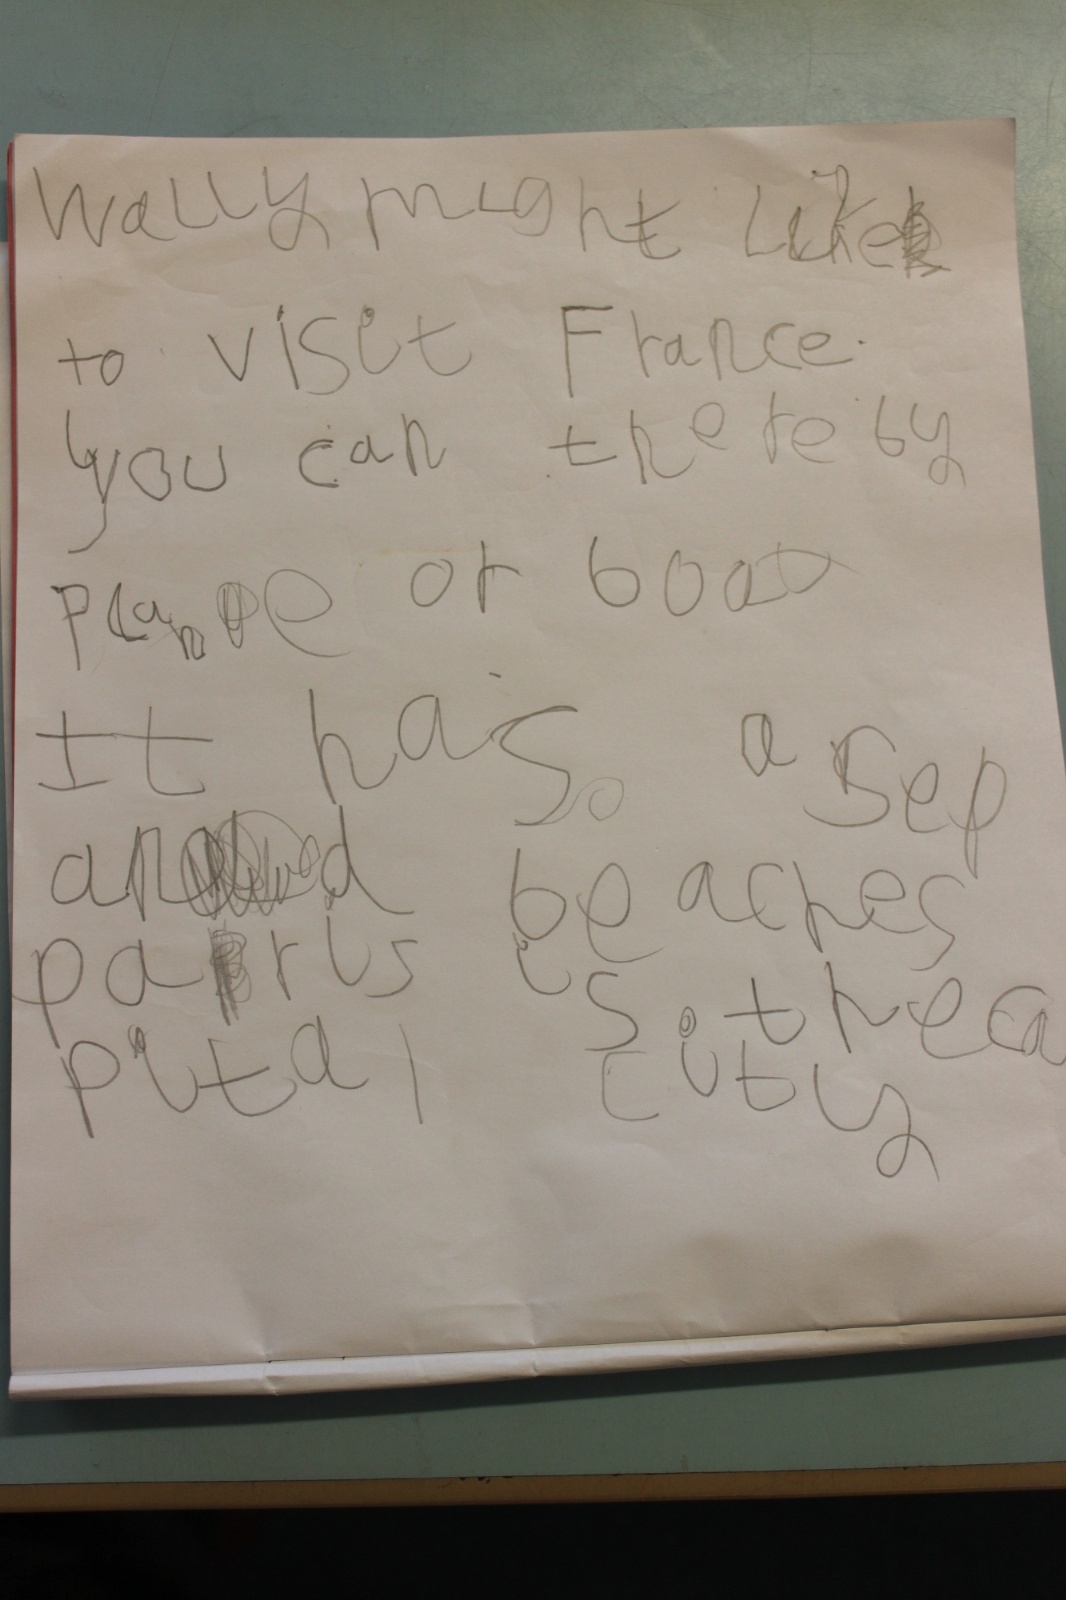 Wally might Like
to visit France.
you can there by
plane or boat
It has a sep
and beaches
paris is the ca
pital city